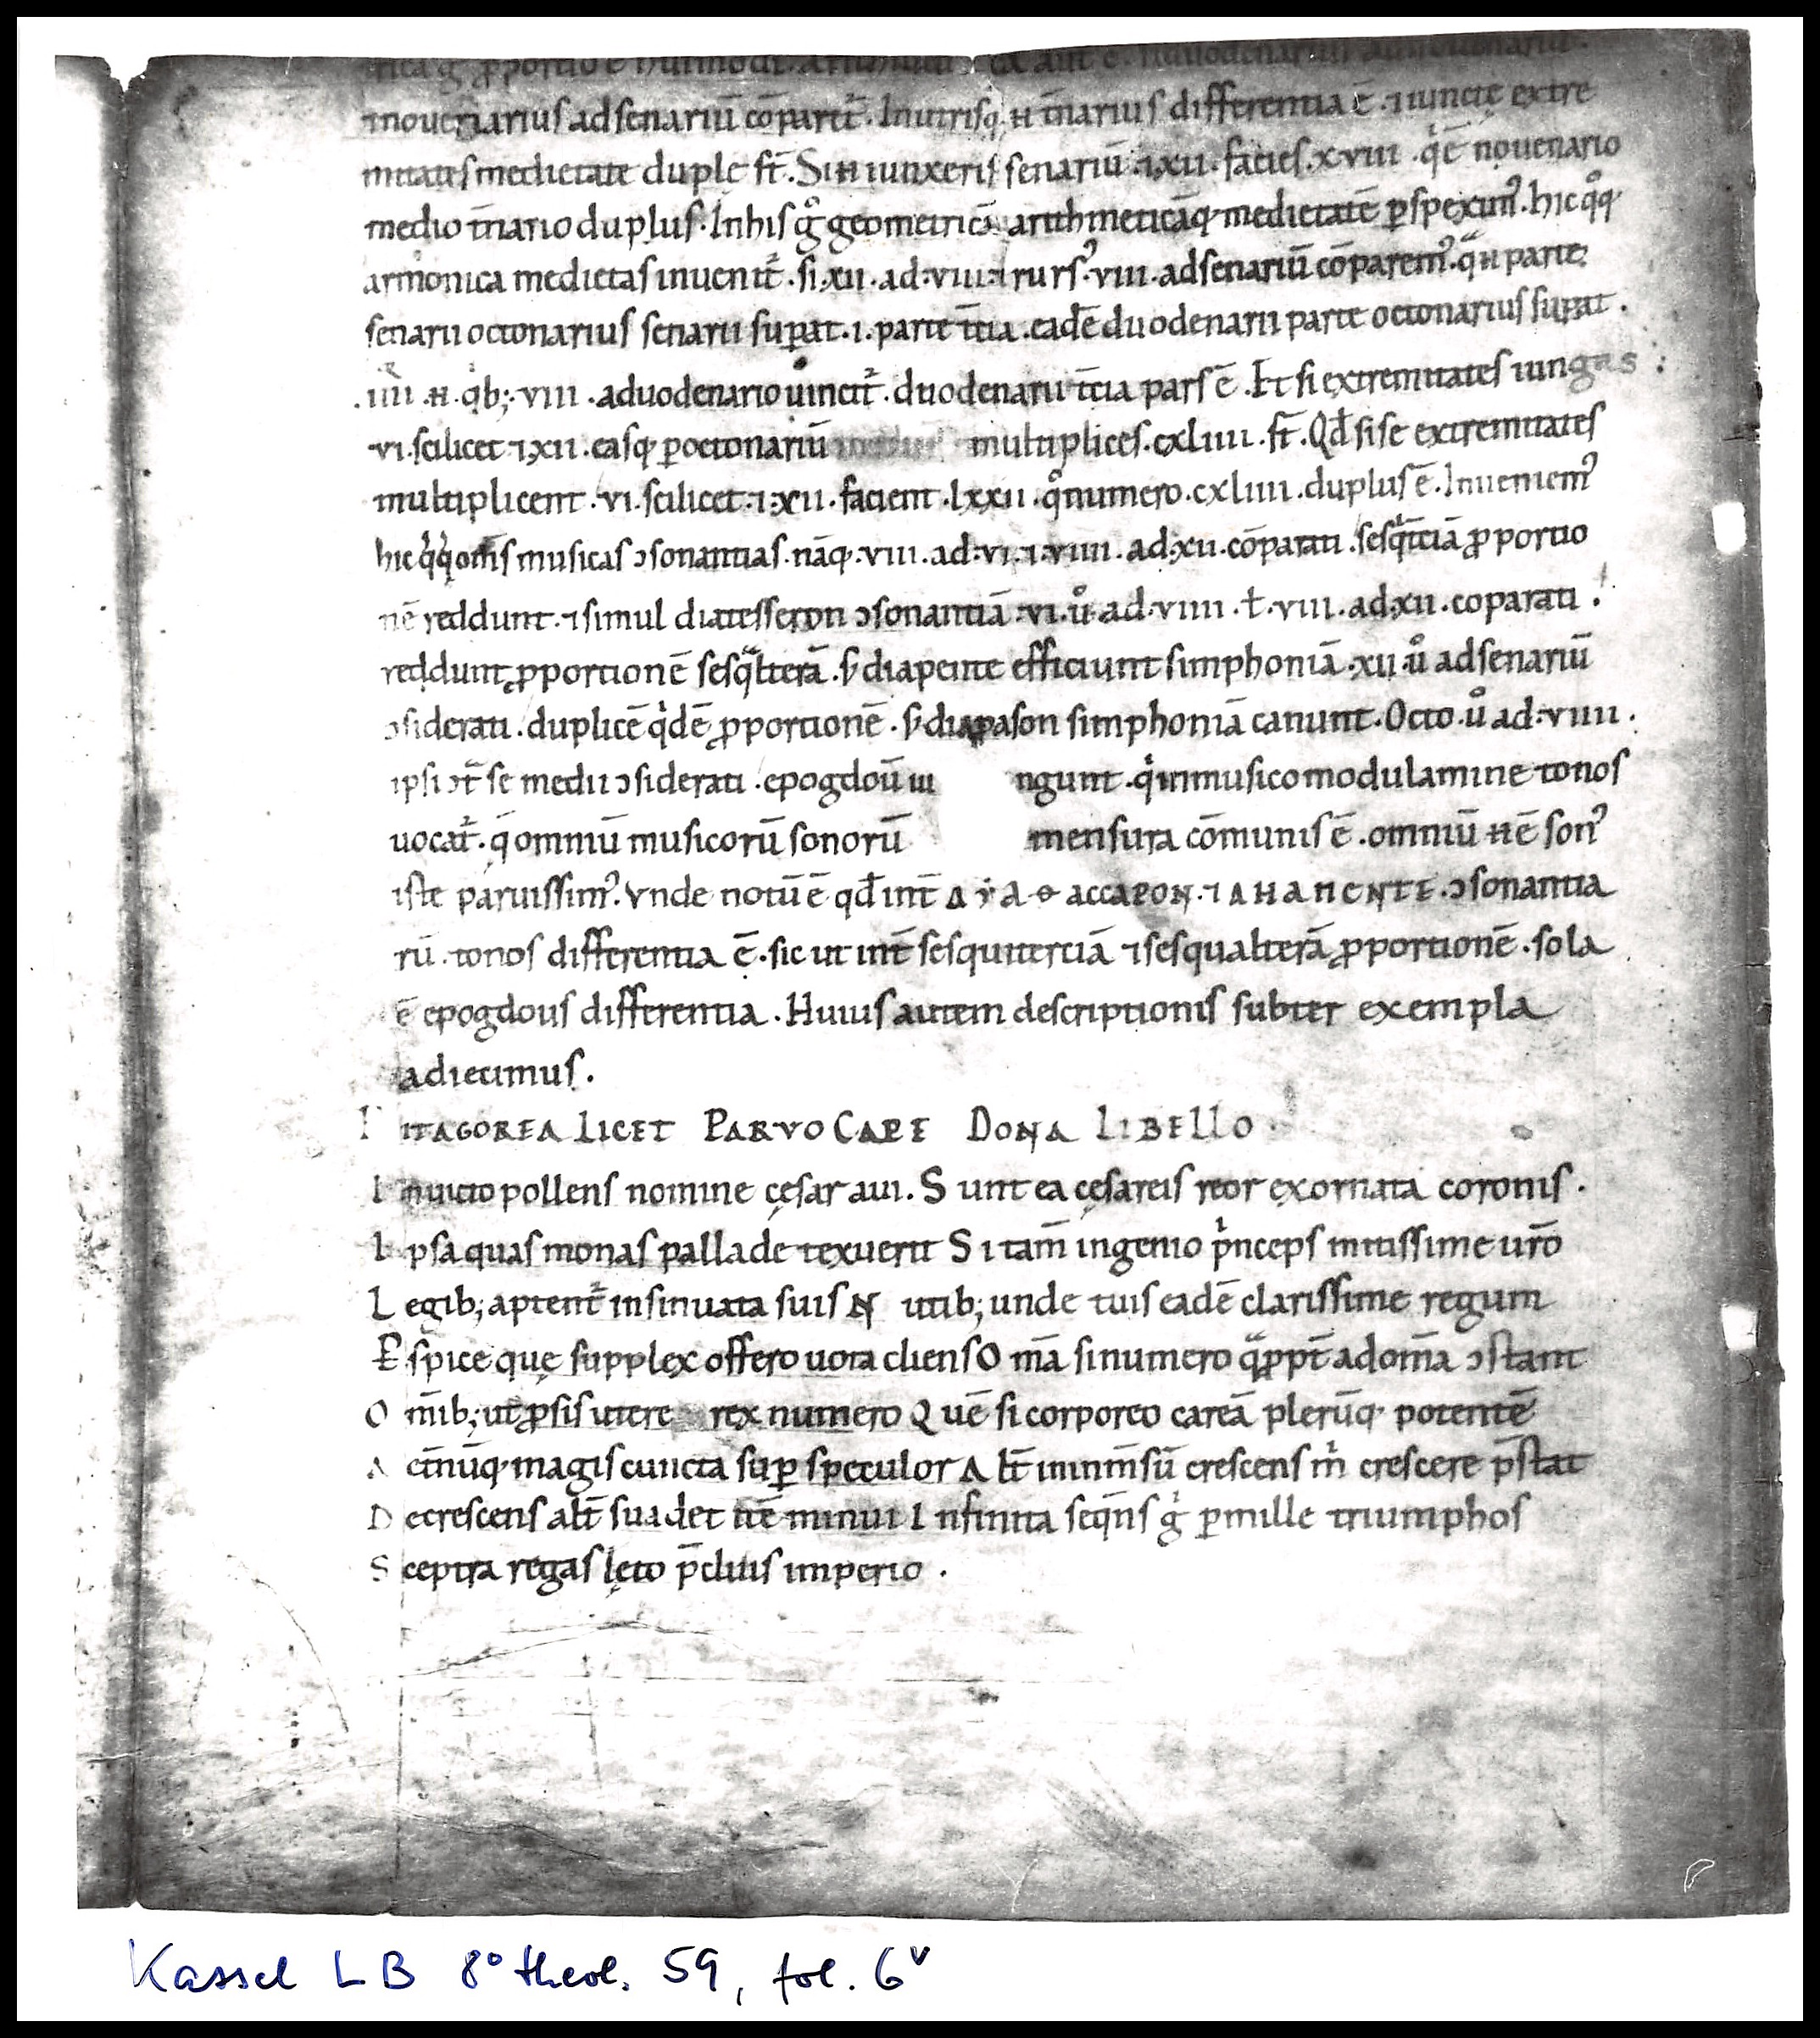 nouenarius ad senariū cōparet̄. In utrisq; n̄ t̄narius differentia ē. ⁊ iuncte extre
mitates medietate duple st̄. Si n̄ iunxeris senariū ⁊ xii. facies. xviii. q̇ ē nouenario
medio t̄nario duplus. In his gͦ geometricā arithmeticāq; medietatē ꝑspeximꝰ. hic qͦq;
armonica medietas inuenit̄. si. xii. ad. viii. ⁊ rursꝰ. viii. ad senariū cōparemꝰ. qᵃ n̄ parte
senarii octonarius senarii suꝑat. i. parte t̄cia. eadē duodenarii parte octonarius suꝑat.
.iiii. n̄. qⁱb; viii. a duodenario uincit̄. duodenarii t̄cia pars ē. Et si extremitates iungas:
.vi. scilicet ⁊ xii. easq; ꝑ octonariū multiplices. cxliiii. st̄. Qd̄ si se extremitates
multiplicent. vi. scilicet. ⁊. xii. facient. lxxii. qͦ numero. cxliiii. duplus ē. Inueniemꝰ
hic qͦq; om̄s musicas ɔsonantias. nāq;. viii. ad. vi. ⁊. viiii. ad. xii. cōparati. sesqⁱt̄ciā ꝓportio
nē reddunt. ⁊ simul diatesseron ɔsonantiā. vi. uͦ ad. viiii. ł. viii. ad. xii. coparati.
reddunt ꝓportionē sesqᵃlterā. s; diapente efficiunt simphoniā. xii. uͦ ad senariū
ɔsiderati. duplicē qⁱdē ꝓportionē. s; diapason simphoniā canunt. Octo. uͦ ad. viiii.
ipsi ɔt̄ se medii ɔsiderati. epogdoū iu ngunt. qⁱ in musico modulamine tonos
uocat̄. q̄ omniū musicorū sonorū mensura cōmunis ē. omniū n̄ ē sonꝰ
iste paruissimꝰ. Vnde notū ē qd̄ int̄ ɔsonantia
rū. tonos differentia ē. sic ut int̄ sesquiterciā ⁊ sesqualterā ꝓportionē. sola
ē epogdous differentia. Huius autem descriptionis subter exempla
adiecimus.
PITAGOREA LICET PARVO CAPE DONA LIBELLO.
I nuicto pollens nomine cęsar aui. S unt ea cęsareis reor exornata coronis.
I psa quas monas pallade texuerit S i tam̄ ingenio pⁱnceps mitissime ur̄o
L egib; aptent̄ insinuata suis N utib; unde tuis eadē clarissime regum
E spice quę supplex offero uota cliens O m̄a si numero qᵃ ꝓpt̄ ad om̄a ɔstant
O m̄ib; ut ꝓsis utere rex numero Q uē si corporeo careā plerūq; potentē
A et̄nūq; magis cuncta suꝑ speculor A lt̄ in inm̄sū crescens mⁱ crescere p̄stat
D ecrescens alt̄ suadet n̄ ē minui I nfinita seqn̄s gͦ ꝑ mille triumphos
S ceptra regas lęto p̄cluis imperio.
Kassel LB 8° theol. 59, fol. 6ᵛ